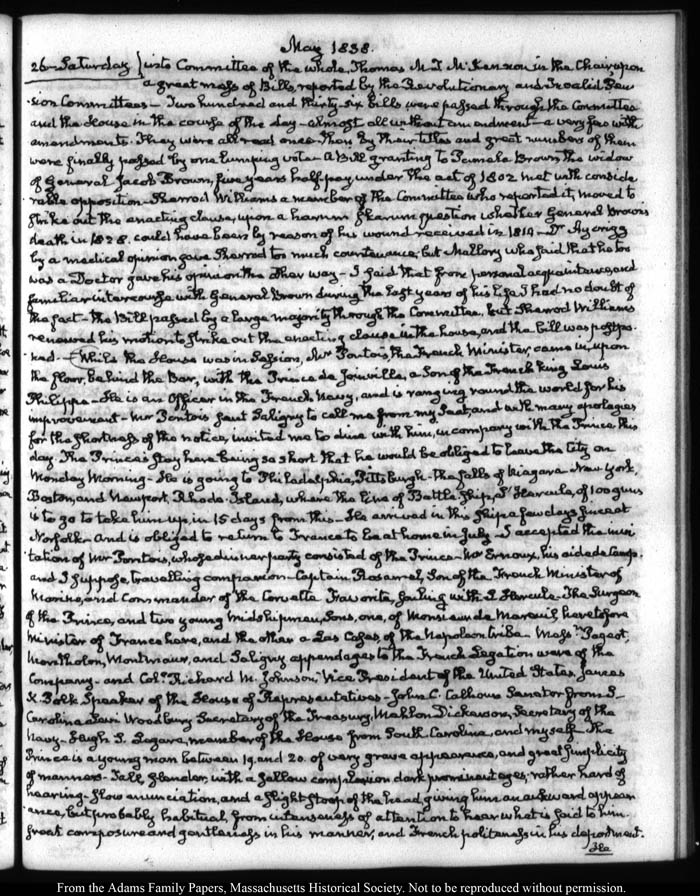 May 1838.
26. Saturday into Committee of the whole. Thomas M. T. McKennan in the Chair, upon
a great mass of Bills reported by the Revolutionary and Invalid Pen
sion Committees — Two hundred and thirty-six bills were passed through the Committee
and the House in the course of the day — almost all without amendment — a very few with
amendments. They were all read once — then by their titles and great numbers of them
were finally passed by one lumping vote — A Bill granting to Pamela Brown the widow
of General Jacob Brown, five years half pay, under the act of 1802 met with conside
rable opposition — Sherrod Williams a member of the Committee who reported it, moved to
strike out the enacting clause, upon a harum skarum question whether General Brown's
death in 1828. could have been by reason of his wound received in 1814 — Dr Aycrigg
by a medical opinion gave Sherrod too much countenance, but Mallory who said that he too
was a Doctor gave his opinion the other way — I said that from personal acquaintance, and
familiar intercourse with General Brown during the last years of his life I had no doubt of
the fact — the Bill passed by a large majority through the Committee, but Sherrod Williams
renewed his motion to strike out the enacting clause in the house, and the bill was postpo
ned — While the House was in Session, Mr Pontois, the French Minister, came in upon
the floor, behind the Bar, with the Prince de Joinville, a Son of the French King Louis
Philippe — He is an Officer in the French Navy, and is ranging round the world for his
improvement — Mr Pontois sent Saligny to call me from my Seat, and with many apologies
for the shortness of the notice, invited me to dine with him, in company with the Prince this
day. The Prince's stay here being so short that he would be obliged to leave the City on
Monday Morning — He is going to Philadelphia, Pittsburgh — the falls of Niagara — New York,
Boston, and Newport, Rhode Island, where the Line of Battle Ship, L'Hercule, of 100 guns
is to go to take him up, in 15 days from this — He arrived in this ship a few days since at
Norfolk — and is obliged to return to France to be at home in July — I accepted the invi
tation of Mr Pontois, whose dinner party consisted of the Prince — Mr Ernoux, his aide de Camp,
and I suppose, travelling companion — Captain Rosamel, Son of the French Minister of
Marine, and Commander of the Corvette Favorite, sailing with L'Hercule — The Surgeon
of the Prince, and two young midshipmen, Sons, one, of Monsieur de Mareuil, heretofore
Minister of France here, and the other a Las Cases, of the Napoleon tribe — Messrs Pageot,
Montholon, and Saligny appendages to the French Legation were of the
Company — and Coll. Richard M. Johnson, Vice President of the United States, James
K. Polk Speaker of the House of Representatives — John C. Calhoun Senator from S.
Carolina, Levi Woodbury Secretary of the Treasury, Mahlon Dickerson, Secretary of the
Navy — Hugh S. Legare, member of the House from South Carolina, and myself — The
Prince is a young man between 19. and 20. of very grave appearance, and great simplicity
of manners — Tall, slender, with a sallow complexion dark prominent eyes, rather hard of
hearing — slow enunciation, and a slight stoop of the head, giving him an awkward appear
ance, but probably habitual, from intenseness of attention to hear what is said to him.
great composure and gentleness in his manner, and French politeness in his deportment.
He
From the Adams Family Papers, Massachusetts Historical Society. Not to be reproduced without permission.